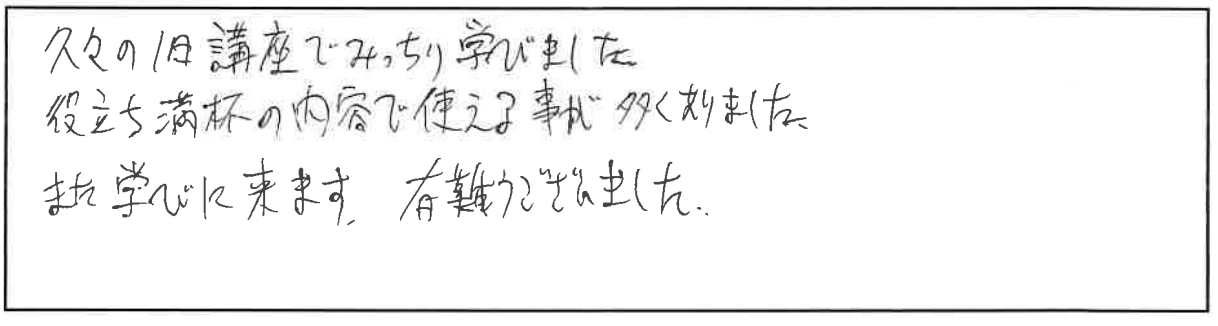 久々の1日講座でみっちり学びました。
役立ち満杯の内容で使える事が多くありました。
また学びに来ます。有難うございました。